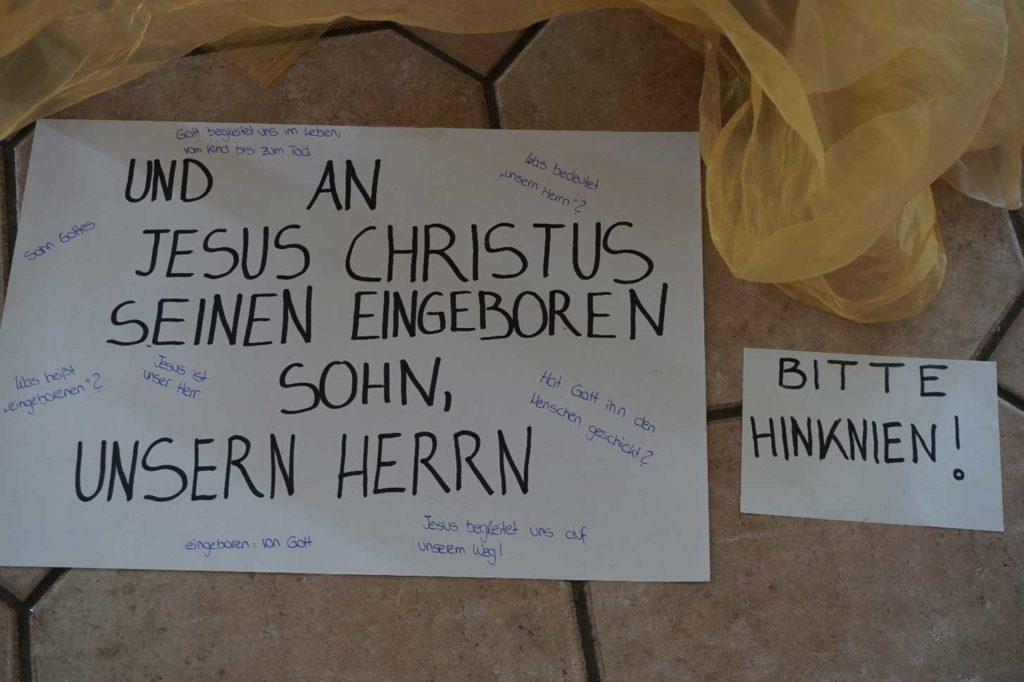 Gott begleitet uns im Leben,
vom Kind bis zum Tod
UND AN
Was bedeutet
„unsern Herrn"?
Sohn Gottes
JESUS CHRISTUS
SEINEN EINGEBOREN
Was heißt
„eingeborenen"?
Jesus ist
unser Herr
SOHN,
Hat Gott ihn den
Menschen geschickt?
UNSERN HERRN
eingeboren: von Gott
Jesus begleitet uns auf
unserem Weg!
BITTE
HINKNIEN!